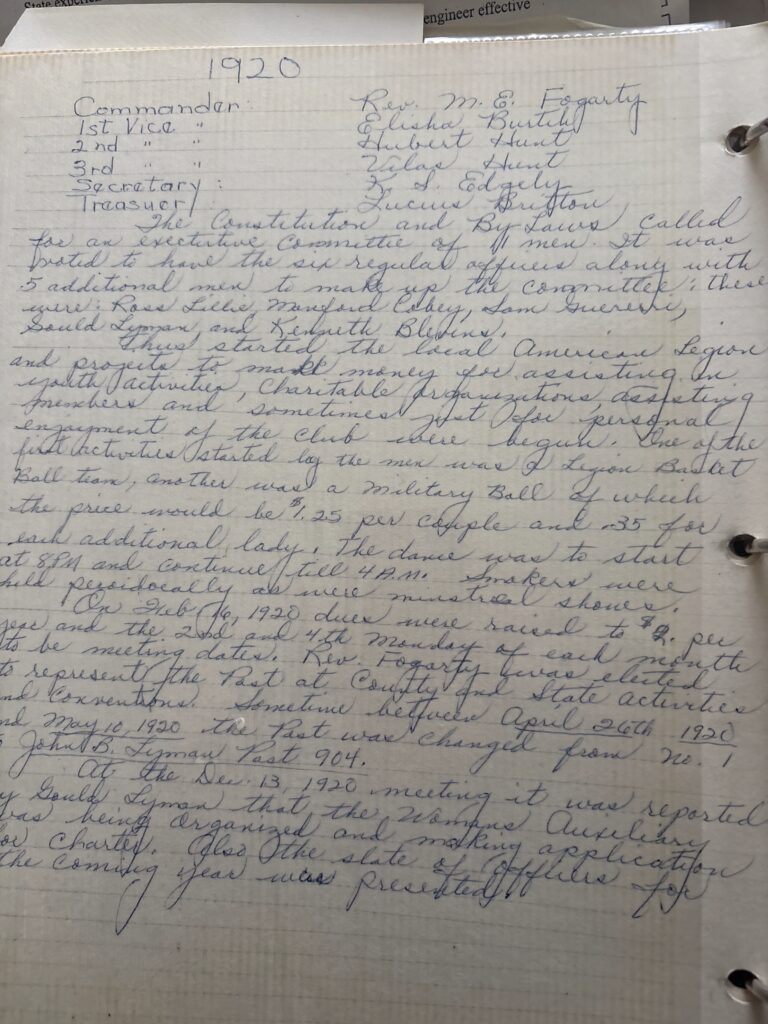 State experien
engineer effective
1920
Commander: Rev. M. E. Fogarty
1st Vice " Elisha Burtch
2nd " " Hubert Hunt
3rd " " Vilas Hunt
Secretary: K. S. Edgely
Treasuer: Lucius Britton
The Constitution and By Laws called
for an exectutive Committee of 11 men. It was
voted to have the six regular officers along with
5 additional men to make up the committee; these
were: Ross Lillie, Manford Cobey, Sam Guererri,
Gould Lyman, and Kenneth Blevins.
Thus started the local American Legion
and projects to make money for assisting in
youth activities, Charitable organizations, assisting
members and sometimes just for personal
enjoyment of the club were begun. One of the
first activities started by the men was a Legion Basket
Ball team, another was a Military Ball of which
the price would be $1.25 per couple and .35 for
each additional lady. The dance was to start
at 8 PM and continue till 4 A.M. Smokers were
held peroidocally as were minstreal shows.
On Feb 16, 1920 dues were raised to $2. per
year and the 2nd and 4th Monday of each month
to be meeting dates. Rev. Fogarty was elected
to represent the Post at County and State activities
and Conventions. Sometime between April 26th 1920
and May 10, 1920 the Post was changed from No. 1
to John B. Lyman Post 904.
At the Dec. 13, 1920 meeting it was reported
by Gould Lyman that the Womans Auxiliary
was being organized and making application
for Charter. Also the slate of Officers for
the coming year was presented.